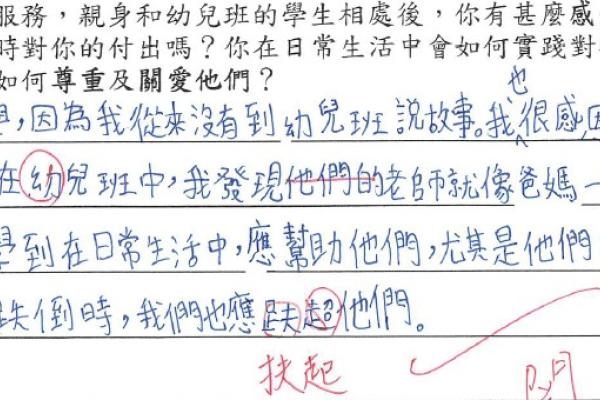 服務，親身和幼兒班的學生相處後，你有甚麼感
時對你的付出嗎？你在日常生活中會如何實踐對
如何尊重及關愛他們？
也
，因為我從來沒有到幼兒班說故事。我很感
在幼兒班中，我發現他們的老師就像爸媽一
學到在日常生活中，應幫助他們，尤其是他們
跌倒時，我們也應趺超他們。
扶起